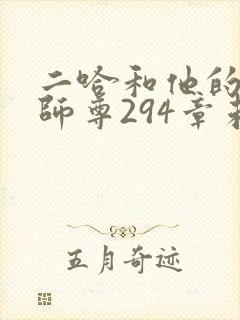 二哈和他的
師尊294章
五月奇迹